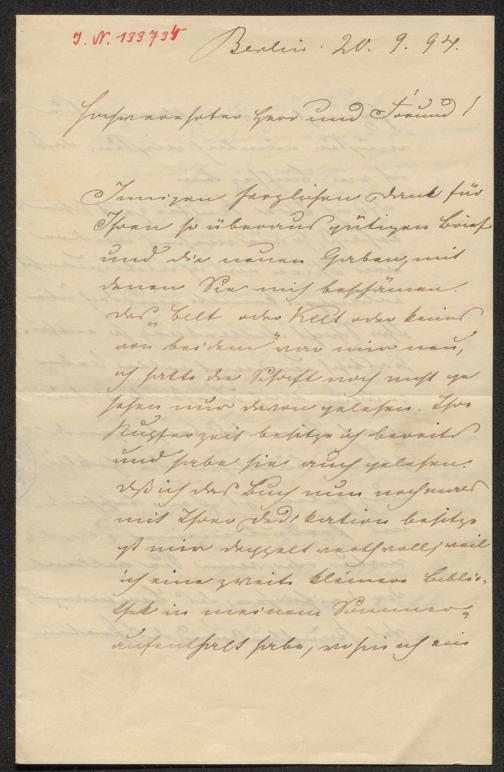 J. N. 133734
Berlin. 20. 9. 94.
Hochverehrter Herr und Freund!
Innigen herzlichen Dank für
Ihren so überaus gütigen Brief
und die neuen Gaben, mit
denen Sie mich beschämen.
Das „Celt oder Kelt oder keins
von beidem“ war mir neu,
ich hatte die Schrift noch nicht ge
sehen nur davon gelesen. Ihre
Kupferzeit besitze ich bereits
und habe sie auch gelesen.
Daß ich das Buch nun nochmals
mit Ihrer Dedikation besitze
ist mir doppelt werthvoll, weil
ich eine zweite kleinere Biblio-
thek in meinem Sommer-
aufenthalt habe, wohin ich ein